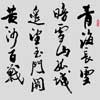 青海長雲
暗雪山孤城
遥望玉門關
黄沙百戰